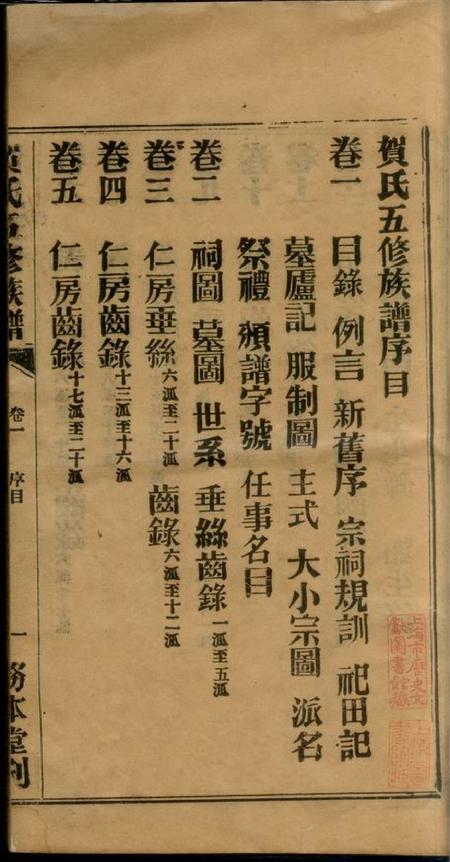 賀氏五修族譜序目
卷一 目錄 例言 新舊序 宗祠規訓 祀田記
墓廬記 服制圖 主式 大小宗圖 派名
祭禮 頒譜字號 任事名目
卷二 祠圖 墓圖 世系 垂絲齒錄一派至五派
卷三 仁房垂絲六派至二十派 齒錄六派至十二派
卷四 仁房齒錄十三派至十六派
卷五 仁房齒錄十七派至二十派
賀氏五修族譜 卷一 序目 一 務本堂刊
上海市歷史文獻圖書館藏